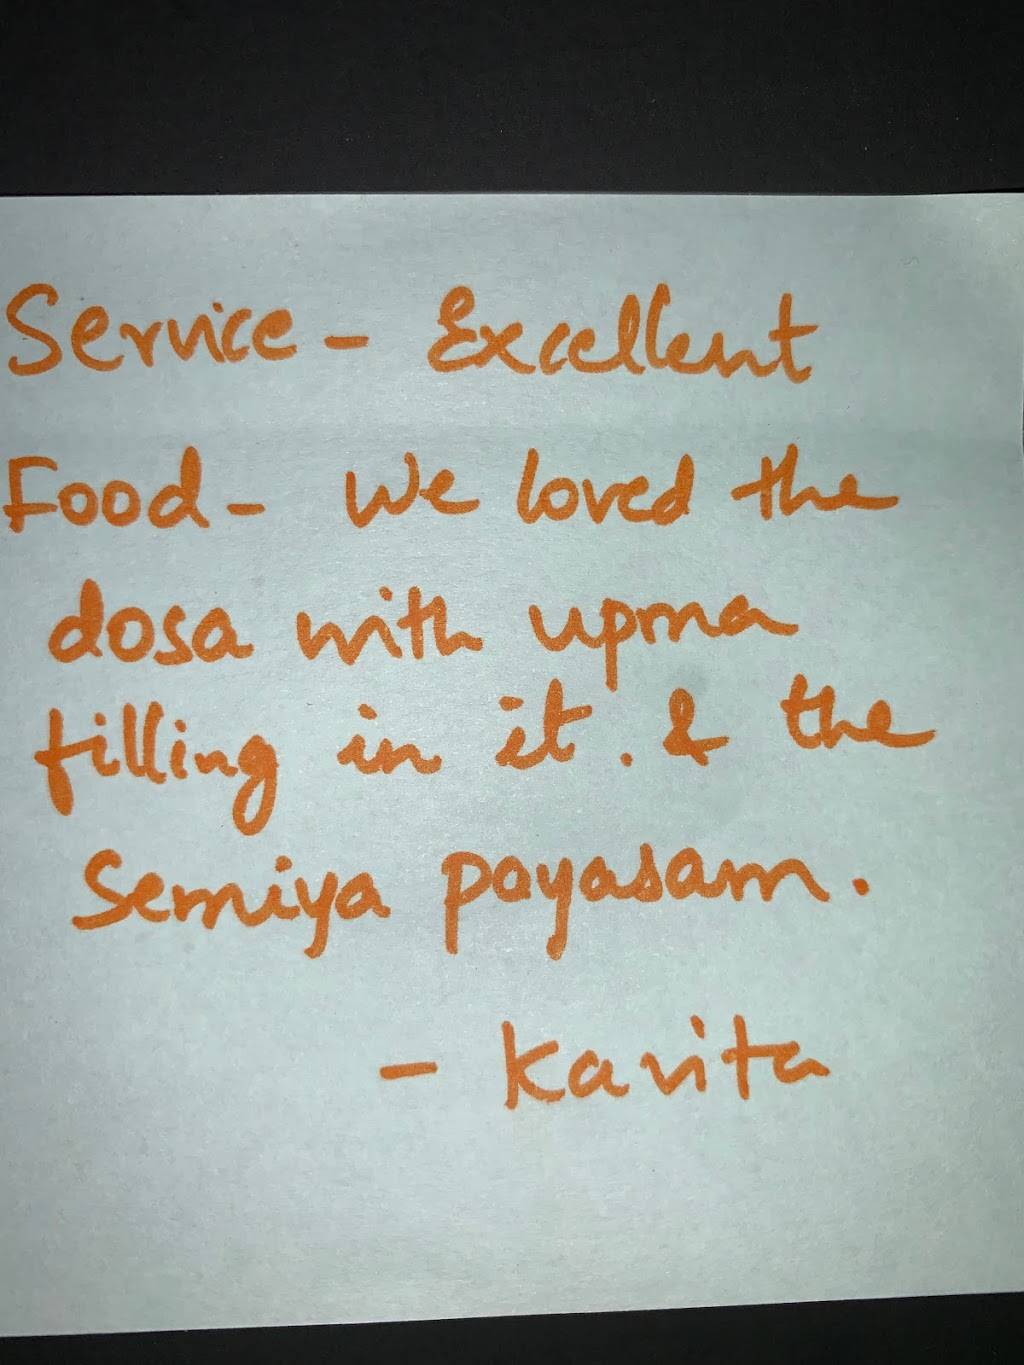 Service - Excellent
Food - We loved the
dosa with upma
filling in it. & the
Semiya payasam.
- Kavita